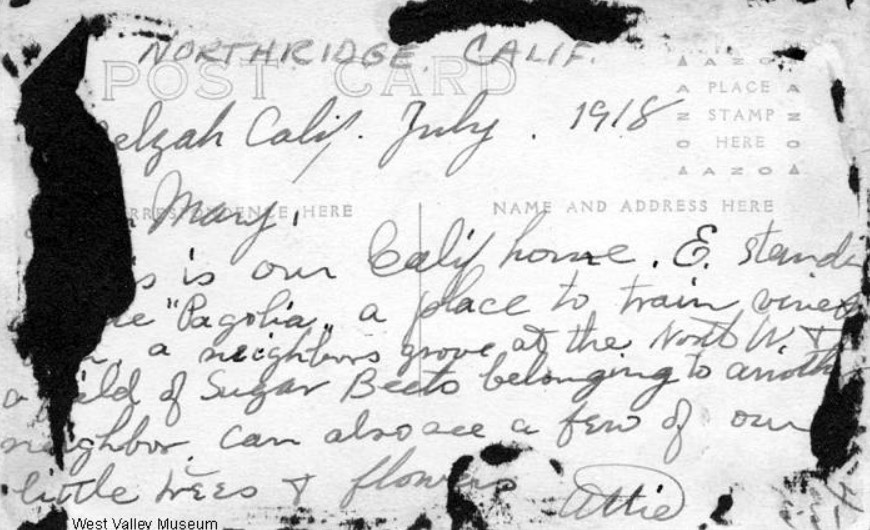 NORTHRIDGE, CALIF.
POST CARD
AZO
PLACE
STAMP
HERE
AZO
elzah Calif. July. 1918
Mary,
RRESPONDENCE HERE
NAME AND ADDRESS HERE
s is our Calif home. E. standi
"Pagolia" a place to train vines
a neighbors grove at the North W. &
a eld of Sugar Beets belonging to anoth
neighbor. Can also see a few of our
little trees & flowers Attie
West Valley Museum